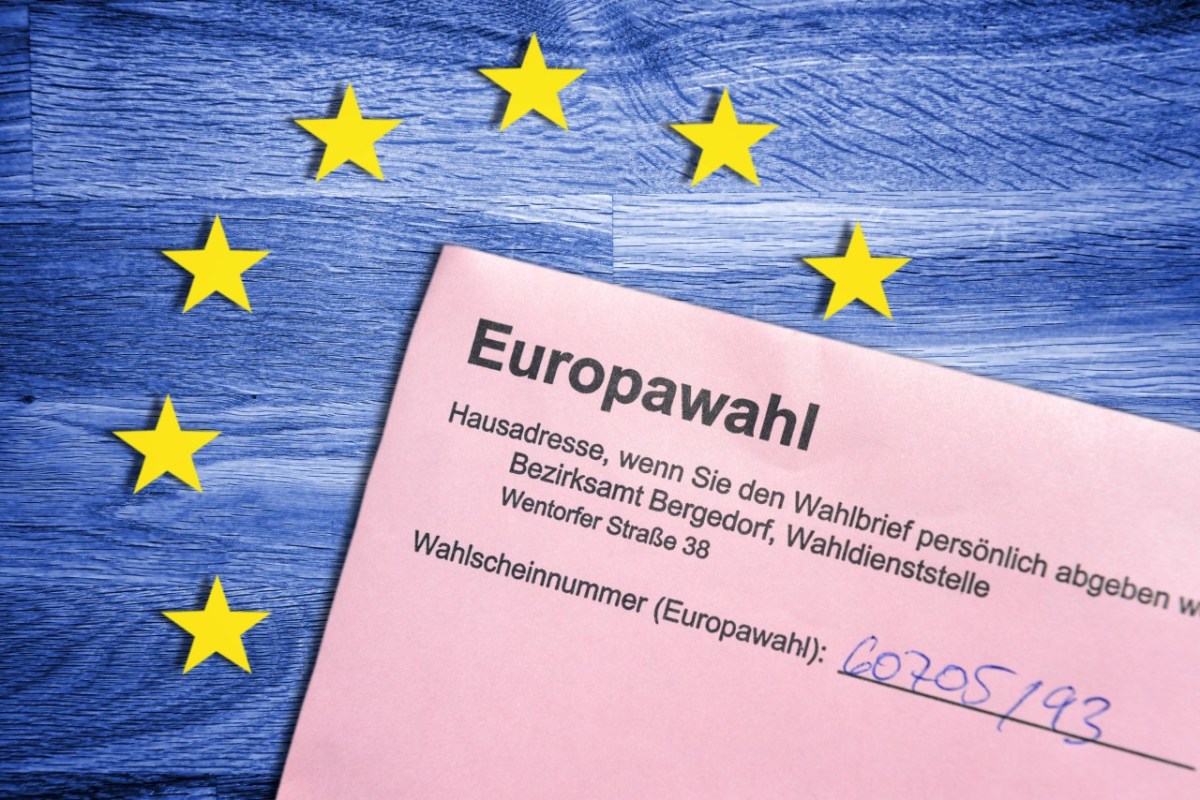 Europawahl
Hausadresse, wenn Sie den Wahlbrief persönlich abgeben w
Bezirksamt Bergedorf, Wahldienststelle
Wentorfer Straße 38
Wahlscheinnummer (Europawahl): 60705/193